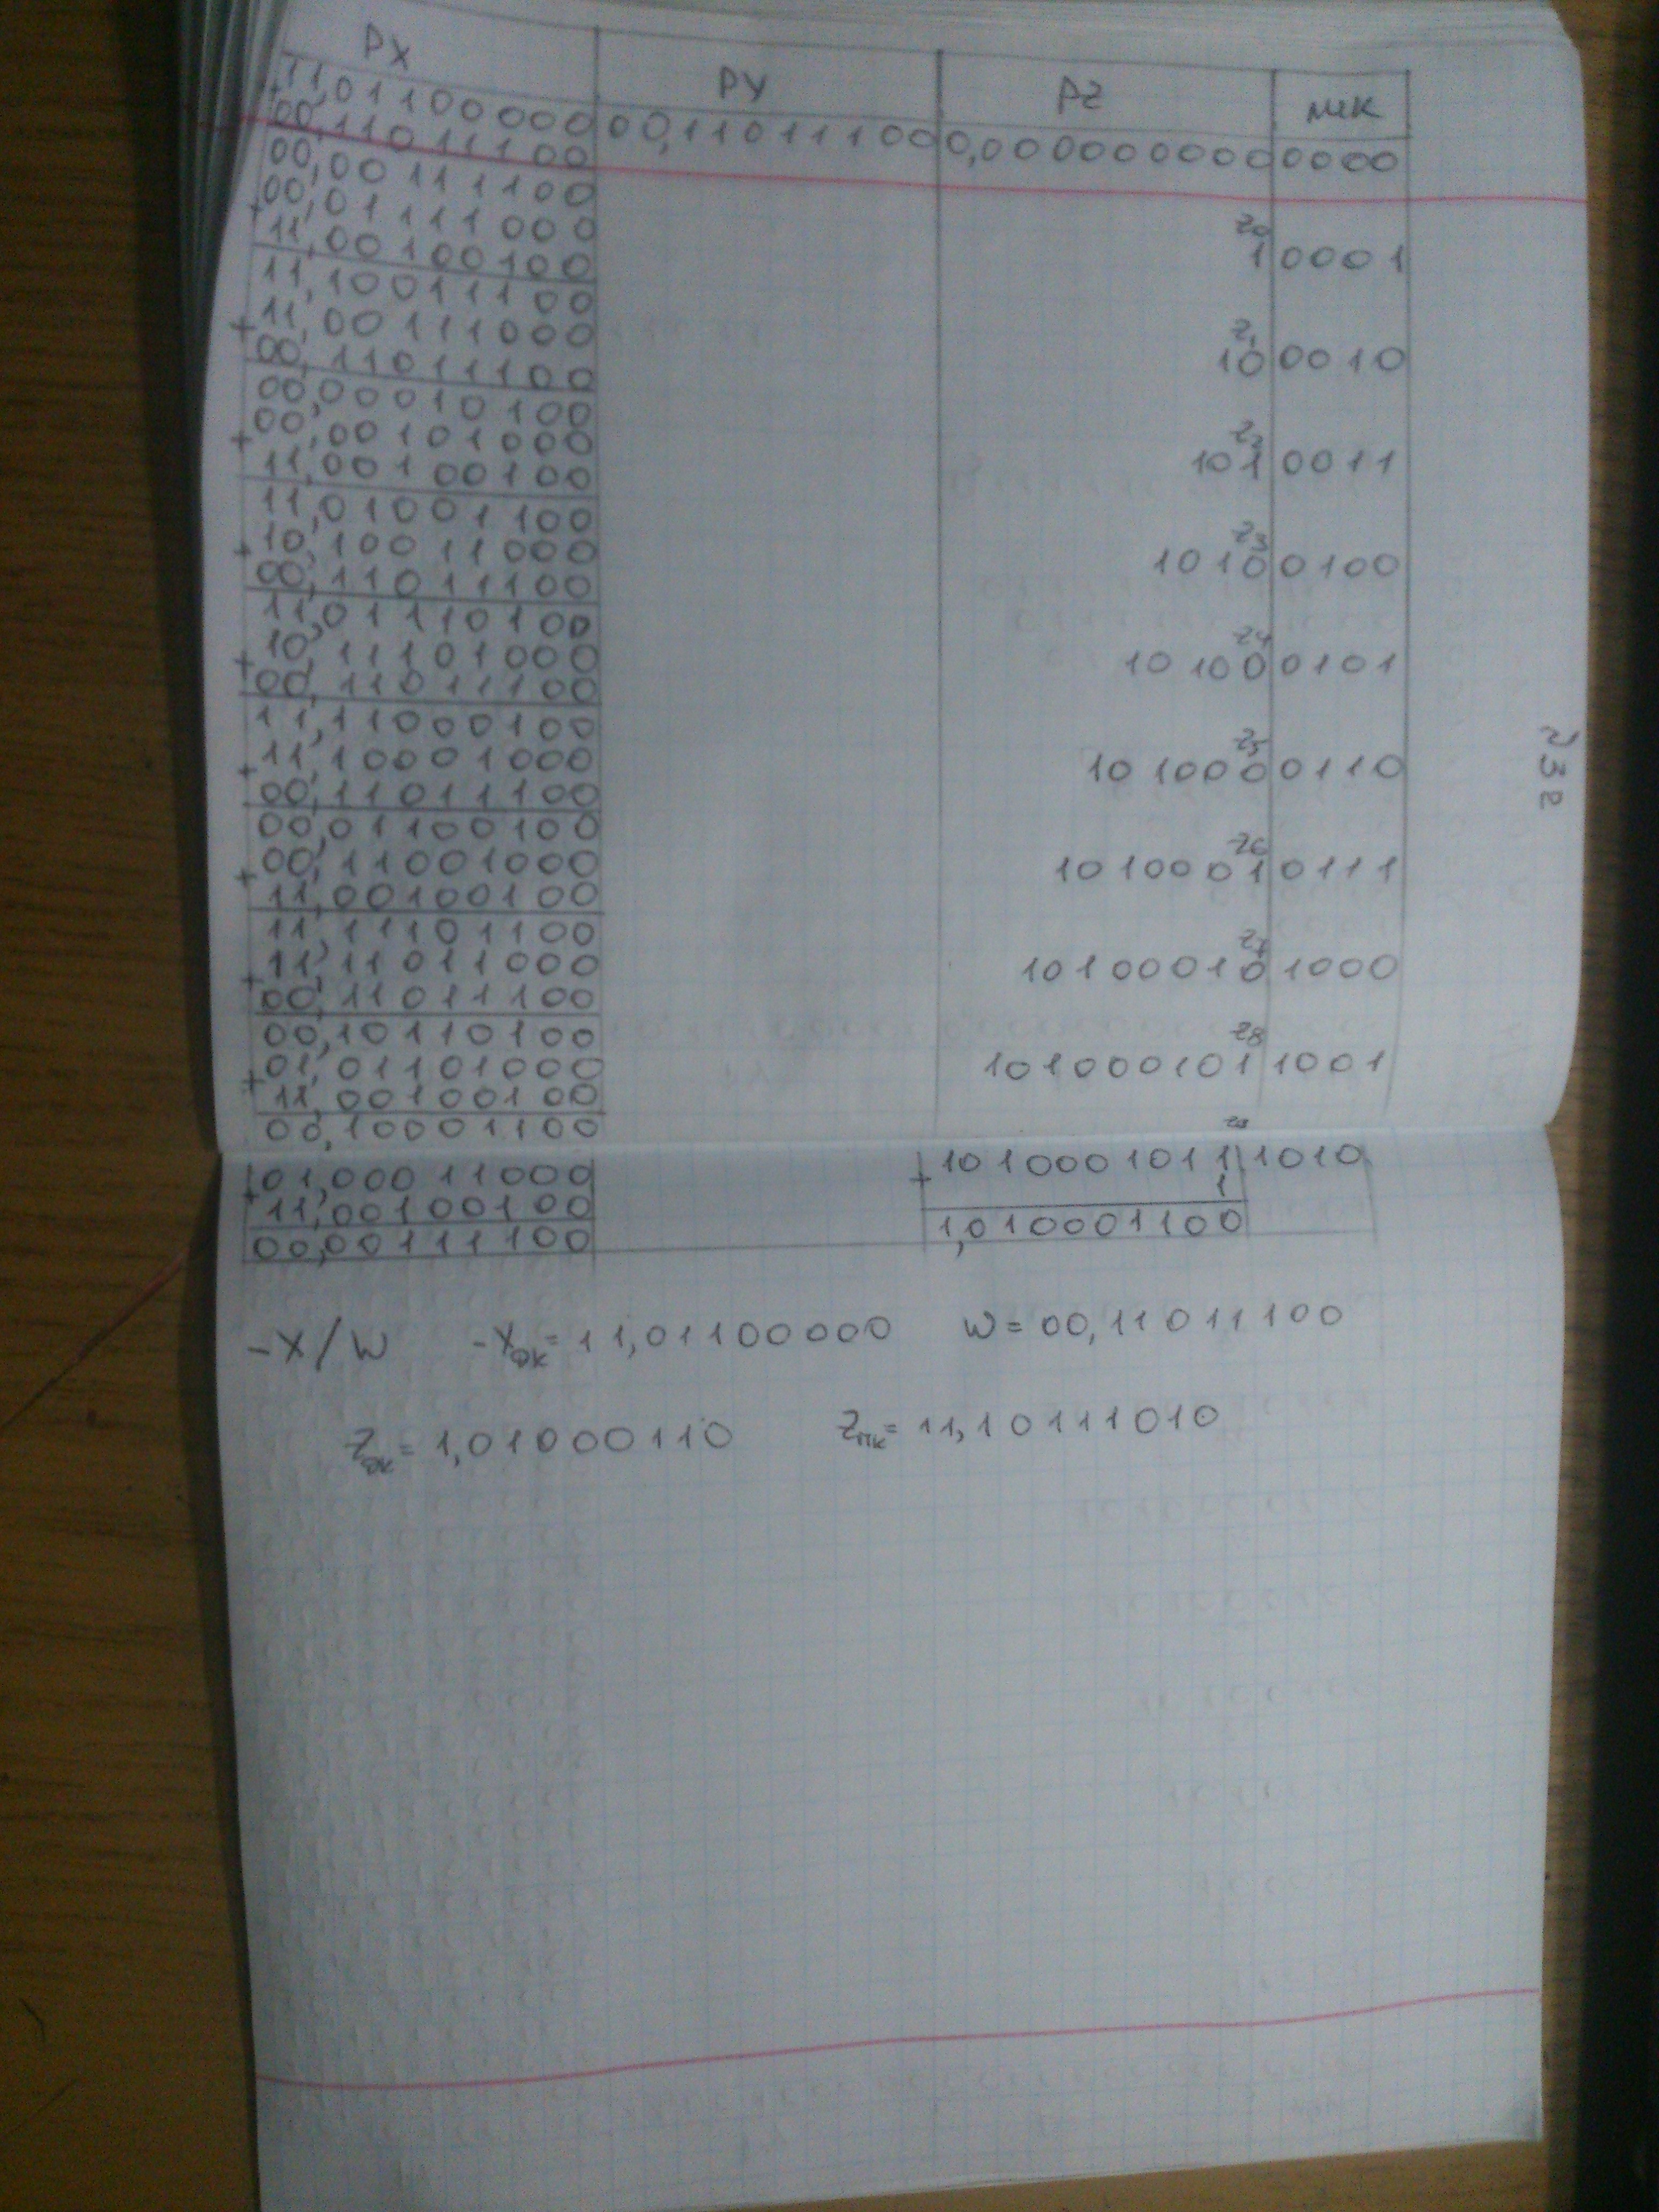 РХ РУ РZ мкк
11,01100000 00,11011100 0,000000000 0000
+ 00,11011100
00,00111100
00,01111000 z0
+ 11,00100100 1 0001
11,10011100
11,00111000 z1
+ 00,11011100 10 0010
00,00010100
00,00101000 z2
+ 11,00100100 101 0011
11,01001100
10,10011000 z3
+ 00,11011100 1010 0100
11,01110100
10,11101000 z4
+ 00,11011100 10100 0101
11,11000100
11,10001000 z5
+ 00,11011100 101000 0110
00,01100100
00,11001000 z6
+ 11,00100100 1010001 0111
11,11101100
11,11011000 z7
+ 00,11011100 10100010 1000
00,10110100
01,01101000 z8
+ 11,00100100 101000101 1001
00,10001100
01,00011000 + 1010001011 1010
+ 11,00100100 1
00,00111100 1,010001100
-X/W -Xдк=11,01100000 W=00,11011100
Zдк=1,01000110 Zпк=11,10111010